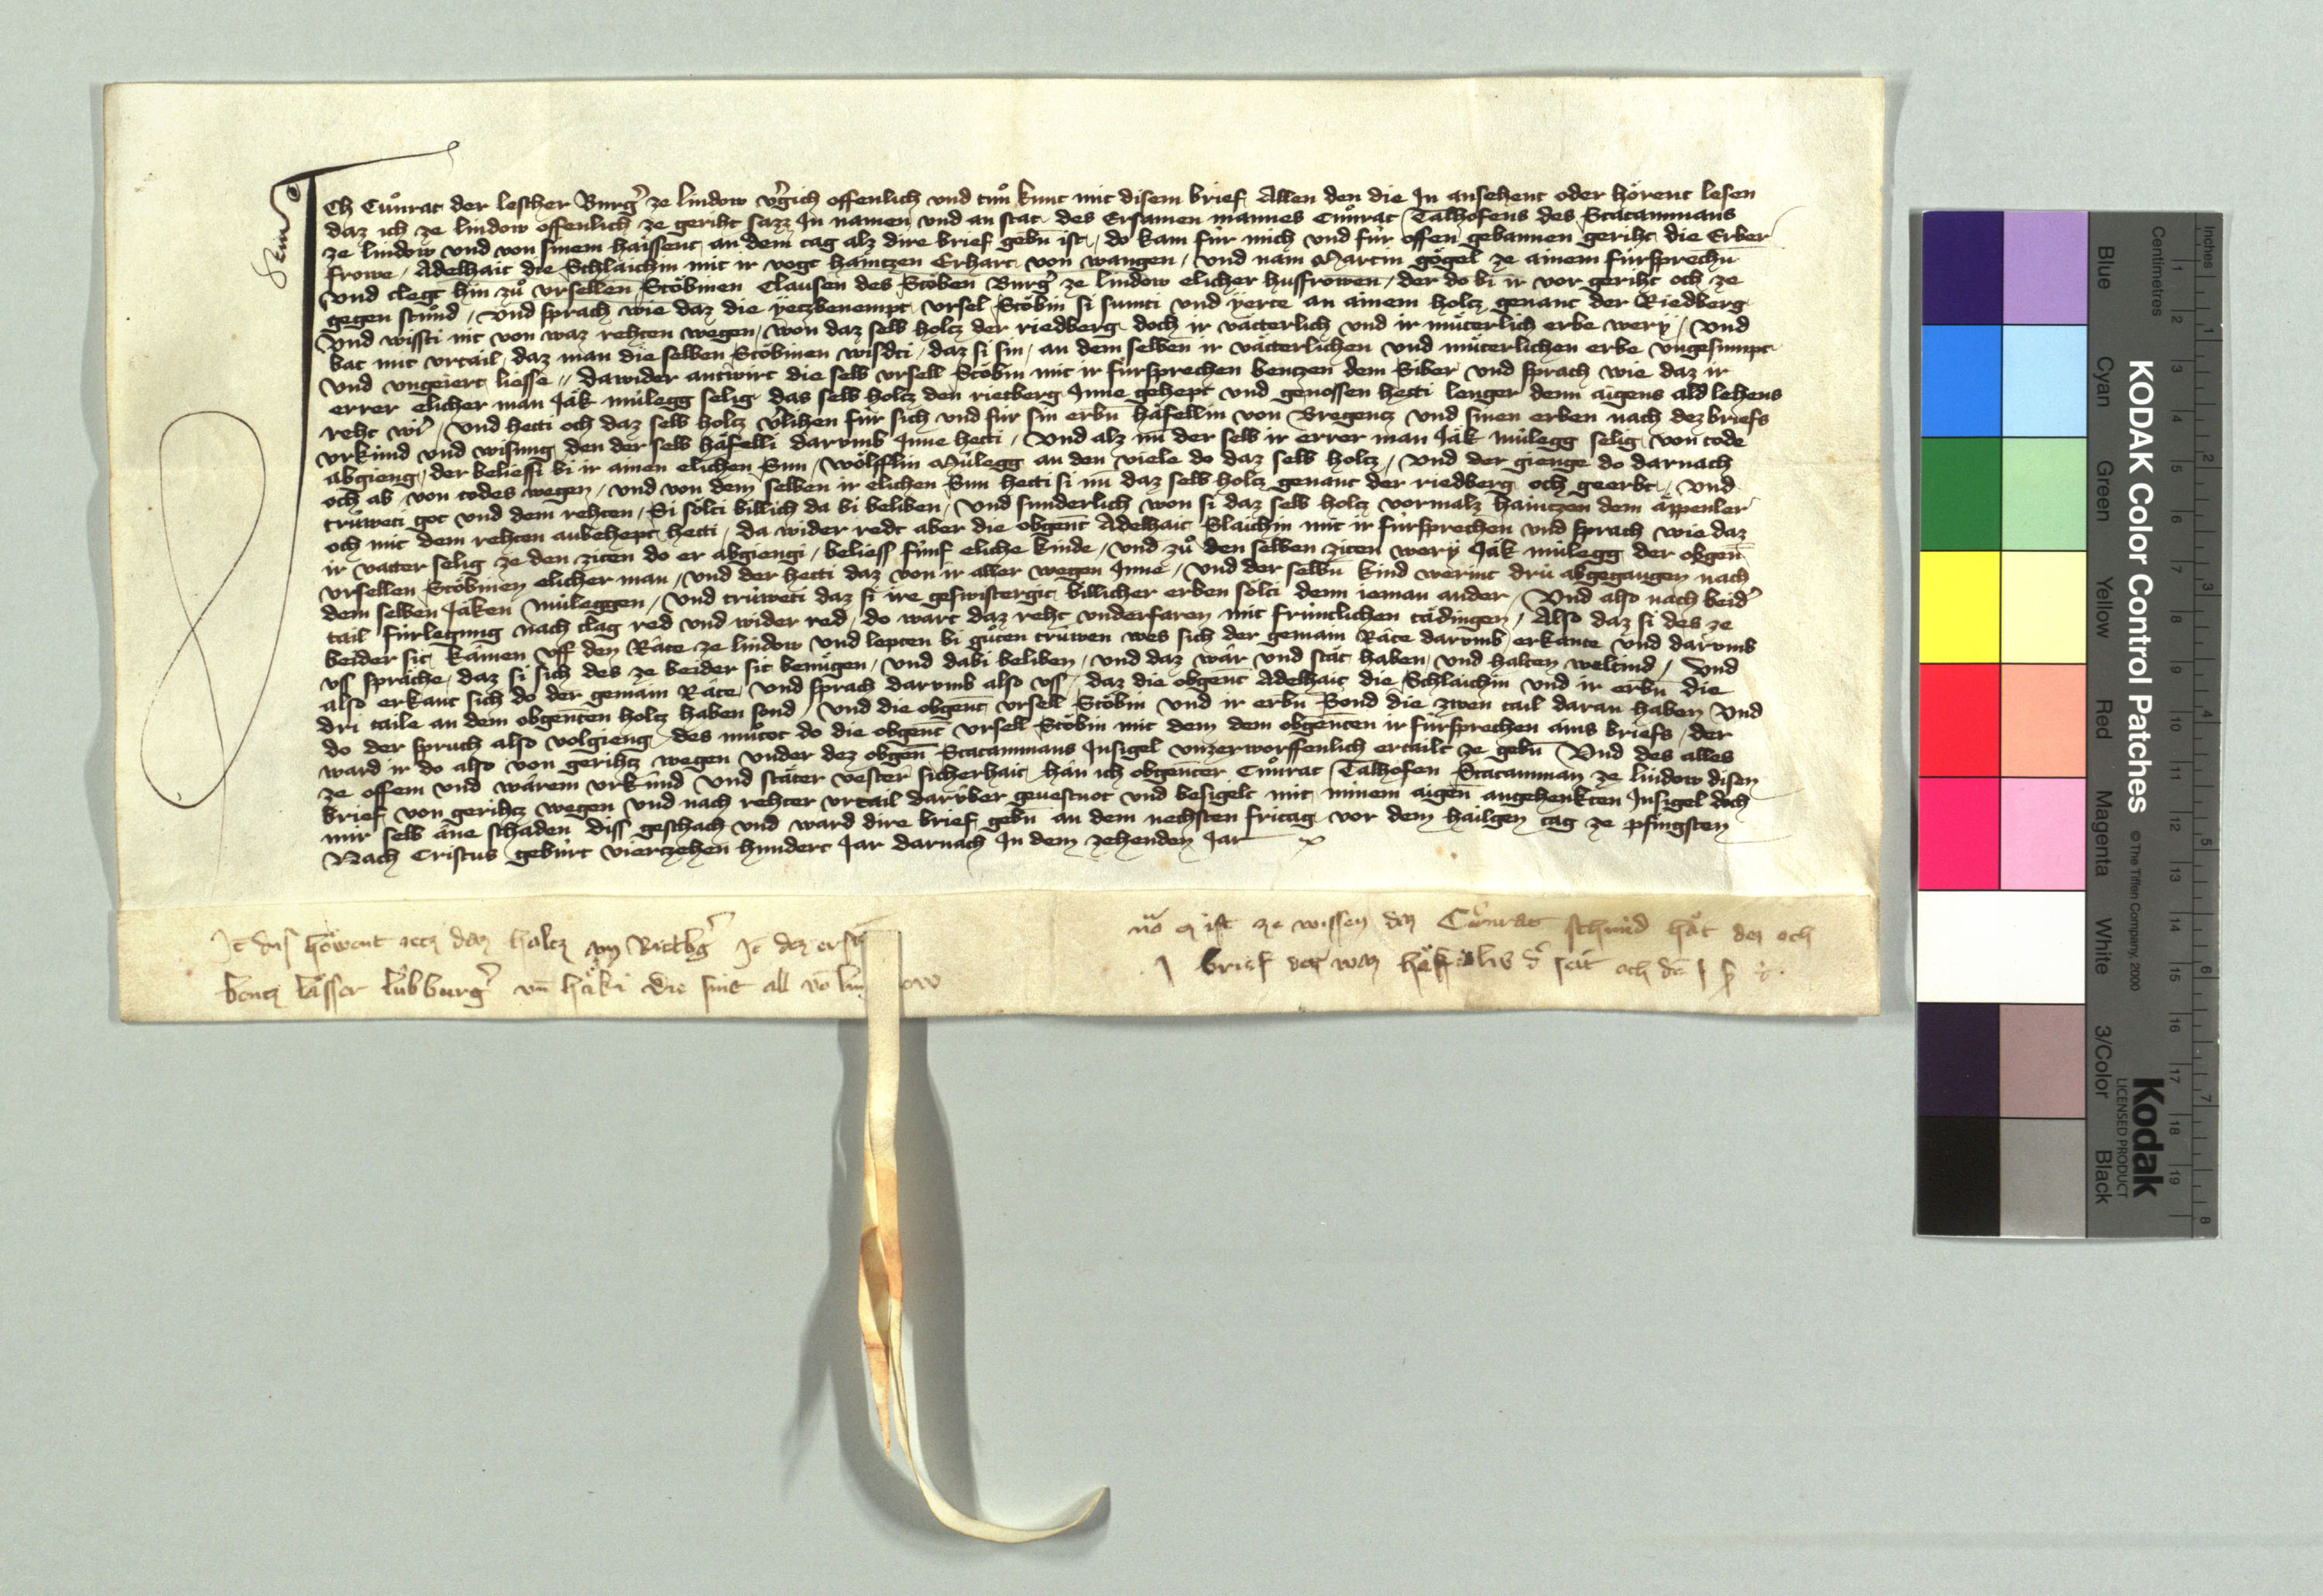 Ich Cuͦnrat der lescher Burg̾ ze lindow v̾gich offenlich vnd tuͦn kunt mit disem brief Allen den die In ansehent oder hoͤrent lesen
daz ich ze lindow offenlich ze geriht sazz In namen vnd an stat des Ersamen mannes Cuͦnrat Talhofens des Statammans
ze lindow vnd von sinem haissent an dem tag alz dire brief gebn̄ ist, do kam fuͤr mich vnd fuͤr offen gebannen geriht die Erber
frowe / Adelhait die Schlaichin mit ir vogt haintzen Erhart von wangen / vnd nam Martin goͤgel ze ainem fuͤrsprechn̄
vnd clegt hin zuͦ vrsellen Stoͤbinen Clausen des Stoͤben Burg̾ ze lindow elicher husfrowen / der do bi ir vor geriht och ze
gegen stuͦnd / vnd sprach wie daz die yetzbenempt vrsel Stoͤbin si sumti vnd yerte an ainem holtz genant der Riedberg
vnd wissti nit von waz rehten wegen / won daz selb holtz der riedberg doch ir vaͤtterlich vnd ir muͤterlich erbe wery / vnd
bat mit vrtail daz man die selben Stoͤbinen wisdti / daz si sin / an dem selben ir vaͤtterlichen vnd muͤterlichen erbe vngesumpt
vnd vngeiert liesse // dawider antwirt die selb vrsell Stoͤbin mit ir fuͤrsprechen bentzen dem Siber vnd sprach wie daz ir
errer elicher man Jaͤk muͤlegg selig das selb holtz den rietberg Inne gehept vnd genossen hetti lenger denn aigens ald lehens
reht wer̾ / vnd hetti och daz selb holtz v̾lihen fuͤr sich vnd fuͤr sin erbn̄ haͤfellin von Bregentz vnd sinen erben nach dez briefs
vrkuͤnd vnd wisung den der selb haͤfelli darvmb Inne hetti / vnd alz nu der selb ir errer man Jaͤk muͤlegg selig von tode
abgieng / der beliessi bi ir ainen elichen Sun / woͤlfflin Muͤlegg an den viele do daz selb holtz / vnd der gienge do darnach
och ab von todes wegen / vnd von dem selben ir elichen Sun hetti si nu daz selb holtz genant der riedberg och geerbt / vnd
truͤweti got vnd dem rehten / Si soͤlti billich da bi beliben / vnd sunderlich won si daz selb holtz vormalz haintzen dem aͤppenler
och mit dem rehten anbehept hetti / da wider redt aber die obgen̄t Adelhait Slaichin mit ir fuͤrsprechen vnd sprach wie daz
ir vatter selig ze den ziten do er abgiengi / beliess fuͤnf eliche kinde / vnd zuͦ den selben ziten wery Jaͤk muͤlegg der obgen̄
vrsellen Stoͤbinen elicher man / vnd der hetti daz von ir aller wegen Inne / vnd der selbn̄ kind werint druͤ abgegangen nach
dem selben Jaͤken muͤleggen / vnd truͤweti daz si ire geswistergit billicher erben soͤlti denn ieman ander / vnd also nach beid̾
tail fuͤrlegung nach clag red vnd wider red / do wart daz reht vnderfaren mit fruͤntlichen taͤdingen / Also daz si des ze
beider sit kaͤmen vff den Raͤte ze lindow vnd lepten bi guͦten truͤwen wes sich der gemain Raͤte darvmb erkante vnd darvmb
vs spraͤche / daz si sich des ze beider sit benuͤgen / vnd dabi beliben / vnd daz waͤr vnd staͤt haben vnd halten weltind / vnd
also erkant sich do der gemain Raͤte / vnd sprach darvmb also vs / daz die obgent Adelhait die Schlaichin vnd ir erbn̄ die
dri taile an dem obgen̄ten holtz haben sond / vnd die obgent vrsell Stoͤbin vnd ir erbn̄ Sond die zwen tail daran haben vnd
do der spruch also volgieng / des muͦtot do die obgen̄t vrsell Stoͤbin mit dem dem obgen̄ten ir fuͤrsprechen ains briefs / der
ward ir do also von gerihtz wegen vnder dez obgen̄ Statammans Insigel vnzerworffenlich ertailt ze gebn̄ Vnd des alles
ze offem vnd waͤrem vrkuͤnd vnd staͤter vester sicherhait haͤn ich obgen̄ter Cuͦnrat Talhofen Statamman ze lindow disen
brief von gerihtz wegen vnd nach rehter vrtail daruͤber geuestnot vnd besigelt mit minem aigen̄ angehenkten Insigel doch
mir selb aͤne schaden diss geschach vnd ward dire brief gebn̄ an dem nechsten fritag vor dem hailgen tag ze pfingsten
Nach Cristus geburt viertzehen hundert Jar darnach In dem zehenden Jar
It̄ dis hoͤwent ietz daz holtz am Rietbg̾ It̄ der erst
bentz laͤsser burg̾ vn̄ haͤki die sint all vo̅ lindow
es ist ze wissen daz Cuͦnrat schmid haͤt och
brief
KODAK Color Control Patches
© The Tiffen Company, 2000
Kodak
LICENSED PRODUCT
Inches
Centimetres
Blue
Cyan
Green
Yellow
Red
Magenta
White
3/Color
Black
1
2
3
4
5
6
7
8
1
2
3
4
5
6
7
8
9
10
11
12
13
14
15
16
17
18
19